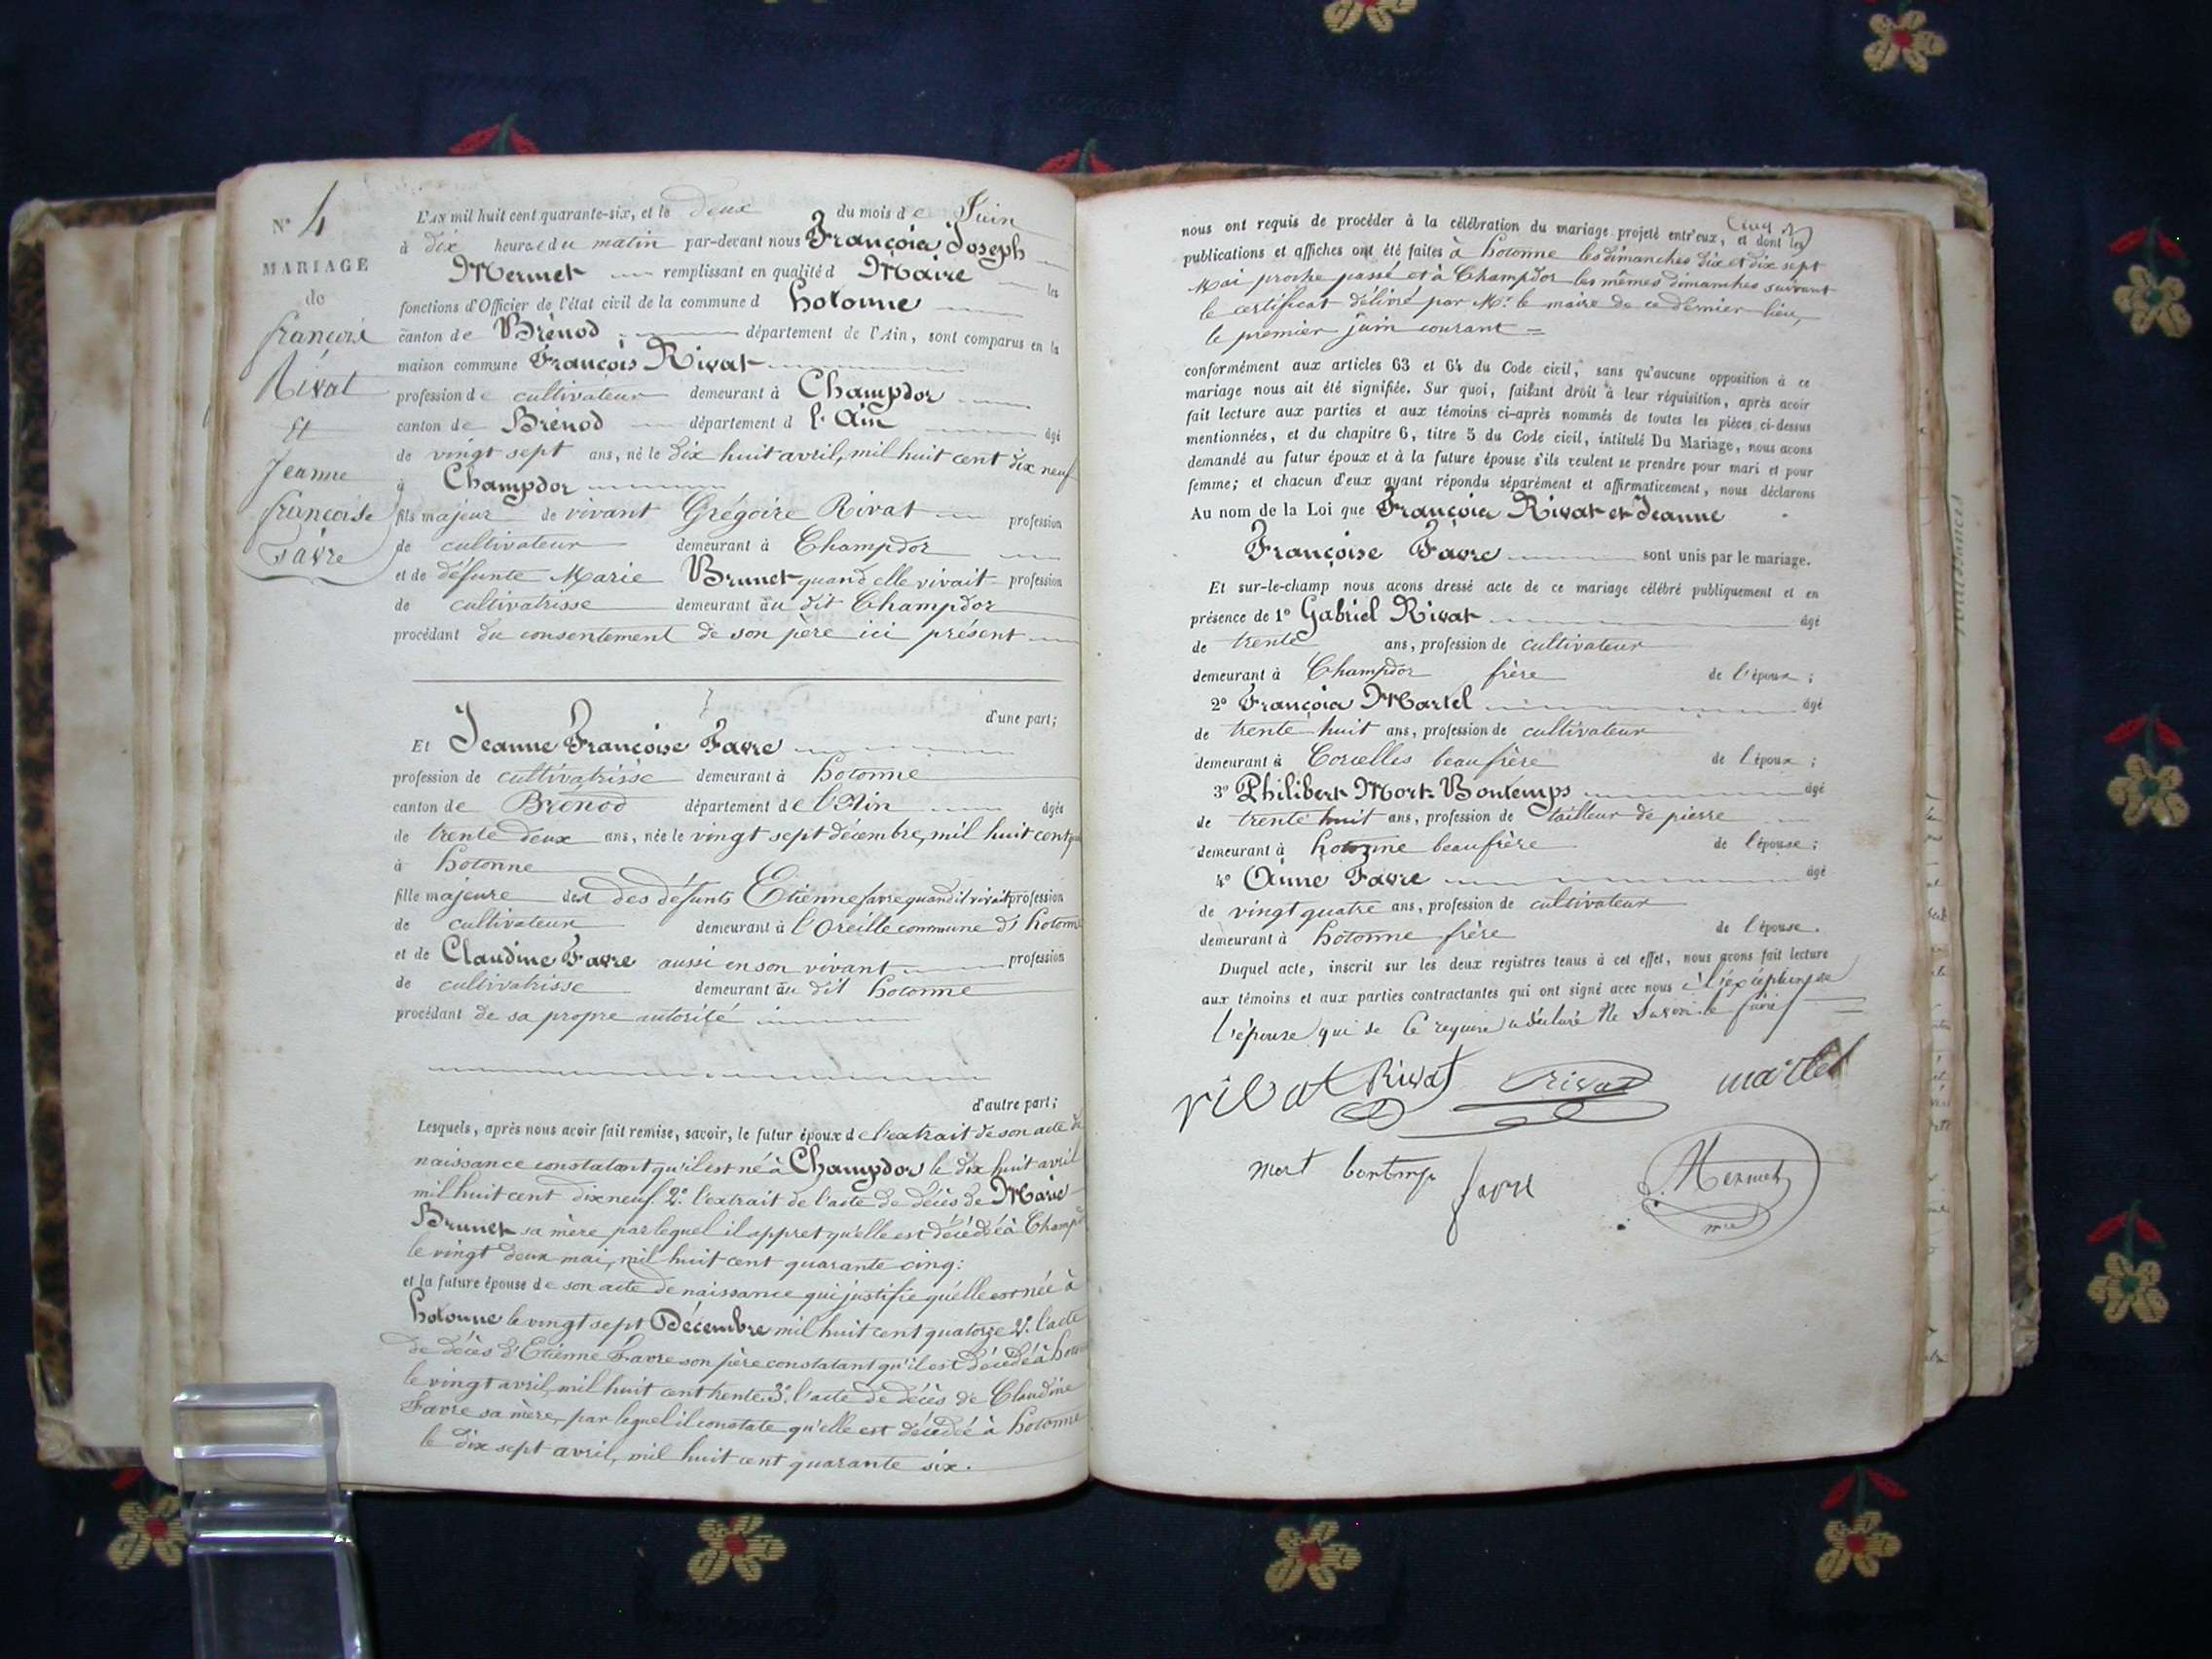 N° 4
MARIAGE
de
françois
Rivat
Et
Jeanne
françoise
favre
L'AN mil huit cent quarante-six, et le deux du mois de Juin
à dix heures du matin par-devant nous François Joseph
Mermet remplissant en qualité d Maire les
fonctions d'Officier de l'état civil de la commune d hotonne
canton de Brénod département de l'Ain, sont comparus en la
maison commune François Rivat
profession de cultivateur demeurant à Champdor
canton de Brénod département d l'Ain âgé
de vingt sept ans, né le dix huit avril, mil huit cent dix neuf
à Champdor
fils majeur de vivant Grégoire Rivat profession
de cultivateur demeurant à Champdor
et de défunte Marie Brunet quand elle vivait profession
de cultivatrisse demeurant au dit Champdor
procédant du consentement de son père ici présent
d'une part;
Et Jeanne Françoise Favre
profession de cultivatrisse demeurant à hotonne
canton de Brénod département de l'Ain âgée
de trente deux ans, née le vingt sept décembre, mil huit cent
à hotonne
fille majeure des défunts Etienne favre quand il vivait profession
de cultivateur demeurant à l'Oreille commune d' hotonne
et de Claudine Favre aussi en son vivant profession
de cultivatrisse demeurant au dit hotonne
procédant de sa propre autorité
d'autre part;
Lesquels, après nous avoir fait remise, savoir, le futur époux de l'extrait de son acte de
naissance constatant qu'il est né à Champdor le dix huit avril
mil huit cent dix neuf. 2° l'extrait de l'acte de décès de Marie
Brunet sa mère par lequel il appret qu'elle est décédée à Champ
le vingt deux mai, mil huit cent quarante cinq:
et la future épouse de son acte de naissance qui justifie qu'elle est née à
hotonne le vingt sept Décembre mil huit cent quatorze 2° l'acte
de décès d'Etienne Favre son père constatant qu'il est décédé à
le vingt avril, mil huit cent trente 3° l'acte de décès de Claudine
Favre sa mère, par lequel il constate qu'elle est décédée à hotonne
le dix sept avril, mil huit cent quarante six.
nous ont requis de procéder à la célébration du mariage projeté entr'eux, et dont les
publications et affiches ont été faites à hotonne les dimanches dix et dix sept
Mai proche passé et à Champdor les mêmes dimanches suivant
le certificat délivré par Mr. le maire de ce dernier lieu,
le premier juin courant =
conformément aux articles 63 et 64 du Code civil, sans qu'aucune opposition à ce
mariage nous ait été signifiée. Sur quoi, faisant droit à leur réquisition, après avoir
fait lecture aux parties et aux témoins ci-après nommés de toutes les pièces ci-dessus
mentionnées, et du chapitre 6, titre 5 du Code civil, intitulé Du Mariage, nous avons
demandé au futur époux et à la future épouse s'ils veulent se prendre pour mari et pour
femme; et chacun d'eux ayant répondu séparément et affirmativement, nous déclarons
Au nom de la Loi que François Rivat et Jeanne
Françoise Favre sont unis par le mariage.
Et sur-le-champ nous avons dressé acte de ce mariage célébré publiquement et en
présence de 1° Gabriel Rivat âgé
de trente ans, profession de cultivateur
demeurant à Champdor frère de l'époux;
2° François Martel âgé
de trente huit ans, profession de cultivateur
demeurant à Corcelles beaufrère de l'époux;
3° Philibert Mort Bontemps âgé
de trente huit ans, profession de tailleur de pierre
demeurant à hotonne beaufrère de l'épouse;
4° Aime Favre âgé
de vingt quatre ans, profession de cultivateur
demeurant à hotonne frère de l'épouse.
Duquel acte, inscrit sur les deux registres tenus à cet effet, nous avons fait lecture
aux témoins et aux parties contractantes qui ont signé avec nous à l'exception de
l'épouse qui de ce requise a déclaré ne savoir le faire
rivat Rivat Rivat martel
mort bontemps favre Mermet
mre